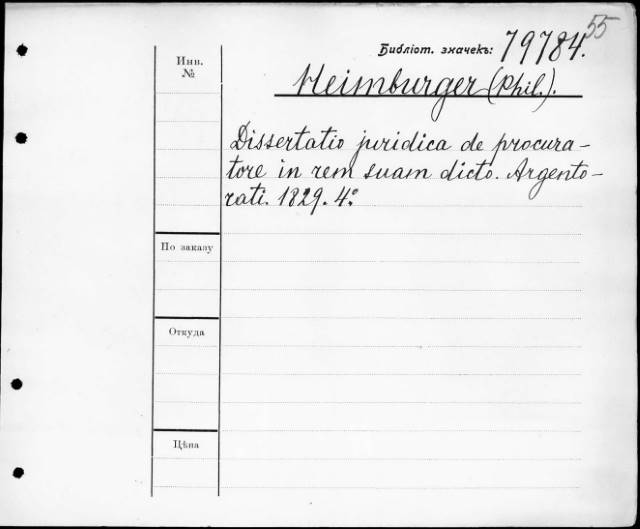 55
Библіот. значекъ: 79784.
Инв.
№
Heimburger (Phil.).
Dissertatio juridica de procura-
tore in rem suam dicto. Argento-
rati. 1829. 4º.
По заказу
Откуда
Цѣна